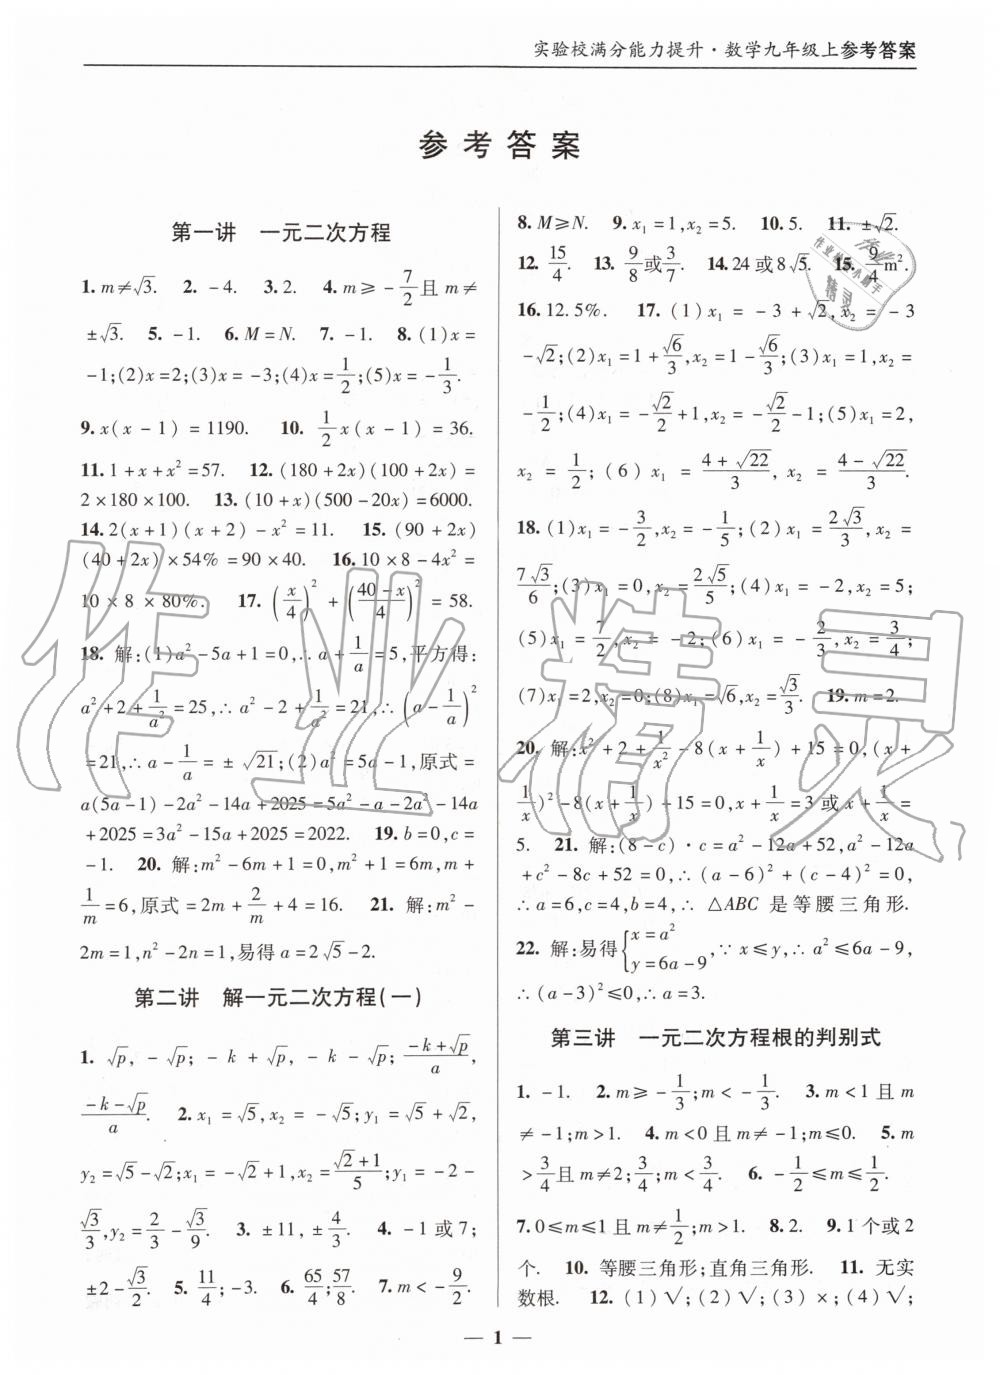 实验校满分能力提升·数学九年级上参考答案
参考答案
第一讲 一元二次方程
1. m≠√3. 2. －4. 3. 2. 4. m≥－7/2且 m≠
±√3. 5. －1. 6. M＝N. 7. －1. 8. (1)x＝
－1;(2)x＝2;(3)x＝－3;(4)x＝1/2;(5)x＝－1/3.
9. x(x－1)＝1190. 10. 1/2x(x－1)＝36.
11. 1＋x＋x²＝57. 12. (180＋2x)(100＋2x)＝
2×180×100. 13. (10＋x)(500－20x)＝6000.
14. 2(x＋1)(x＋2)－x²＝11. 15. (90＋2x)
(40＋2x)×54%＝90×40. 16. 10×8－4x²＝
10×8×80%. 17. (x/4)²＋((40－x)/4)²＝58.
18. 解:(1)a²－5a＋1＝0,∴a＋1/a＝5,平方得:
a²＋2＋1/a²＝25,∴a²－2＋1/a²＝21,∴(a－1/a)²
＝21,∴a－1/a＝±√21;(2)a²＝5a－1,原式＝
a(5a－1)－2a²－14a＋2025＝5a²－a－2a²－14a
＋2025＝3a²－15a＋2025＝2022. 19. b＝0,c＝
－1. 20. 解:m²－6m＋1＝0,m²＋1＝6m,m＋
1/m＝6,原式＝2m＋2/m＋4＝16. 21. 解:m²－
2m＝1,n²－2n＝1,易得a＝2√5－2.
第二讲 解一元二次方程(一)
1. √p,－√p;－k＋√p,－k－√p;(－k＋√p)/a,
(－k－√p)/a. 2. x₁＝√5,x₂＝－√5;y₁＝√5＋√2,
y₂＝√5－√2;x₁＝－√2＋1,x₂＝(√2＋1)/5;y₁＝－2－
√3/3,y₂＝2/3－√3/9. 3. ±11,±4/3. 4. －1或7;
±2－√3/2. 5. 11/4;－3. 6. 65/4;57/8. 7. m＜－9/2.
8. M≥N. 9. x₁＝1,x₂＝5. 10. 5. 11. ±√2.
12. 15/4. 13. 9/8或3/7. 14. 24或8√5. 15. 9/4m².
16. 12.5%. 17. (1)x₁＝－3＋√2,x₂＝－3
－√2;(2)x₁＝1＋√6/3,x₂＝1－√6/3;(3)x₁＝1,x₂＝
－1/2;(4)x₁＝－√2/2＋1,x₂＝－√2/2－1;(5)x₁＝2,
x₂＝1/2;(6)x₁＝(4＋√22)/3,x₂＝(4－√22)/3.
18. (1)x₁＝－3/2,x₂＝－1/5;(2)x₁＝2√3/3,x₂＝
7√3/6;(3)x₁＝0,x₂＝2√5/5;(4)x₁＝－2,x₂＝5;
(5)x₁＝7/2,x₂＝－2;(6)x₁＝－2/3,x₂＝3/4;
(7)x₁＝2,x₂＝0;(8)x₁＝√6,x₂＝√3/3. 19. m＝2.
20. 解:x²＋2＋1/x²－8(x＋1/x)＋15＝0,(x＋
1/x)²－8(x＋1/x)＋15＝0,∴x＋1/x＝3或x＋1/x＝
5. 21. 解:(8－c)·c＝a²－12a＋52,a²－12a
＋c²－8c＋52＝0,∴(a－6)²＋(c－4)²＝0,
∴a＝6,c＝4,b＝4,∴△ABC是等腰三角形.
22. 解:易得{x＝a² y＝6a－9,∵x≤y,∴a²≤6a－9,
∴(a－3)²≤0,∴a＝3.
第三讲 一元二次方程根的判别式
1. －1. 2. m≥－1/3;m＜－1/3. 3. m＜1且m
≠－1;m＞1. 4. m＜0且m≠－1;m≤0. 5. m
＞3/4且m≠2;3/4;m＜3/4. 6. －1/2≤m≤1/2.
7. 0≤m≤1且m≠1/2;m＞1. 8. 2. 9. 1个或2
个. 10. 等腰三角形;直角三角形. 11. 无实
数根. 12. (1)√;(2)√;(3)×;(4)√;
— 1 —
作业精灵